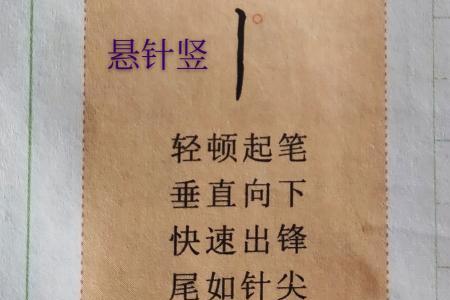 悬针竖
轻顿起笔
垂直向下
快速出锋
尾如针尖